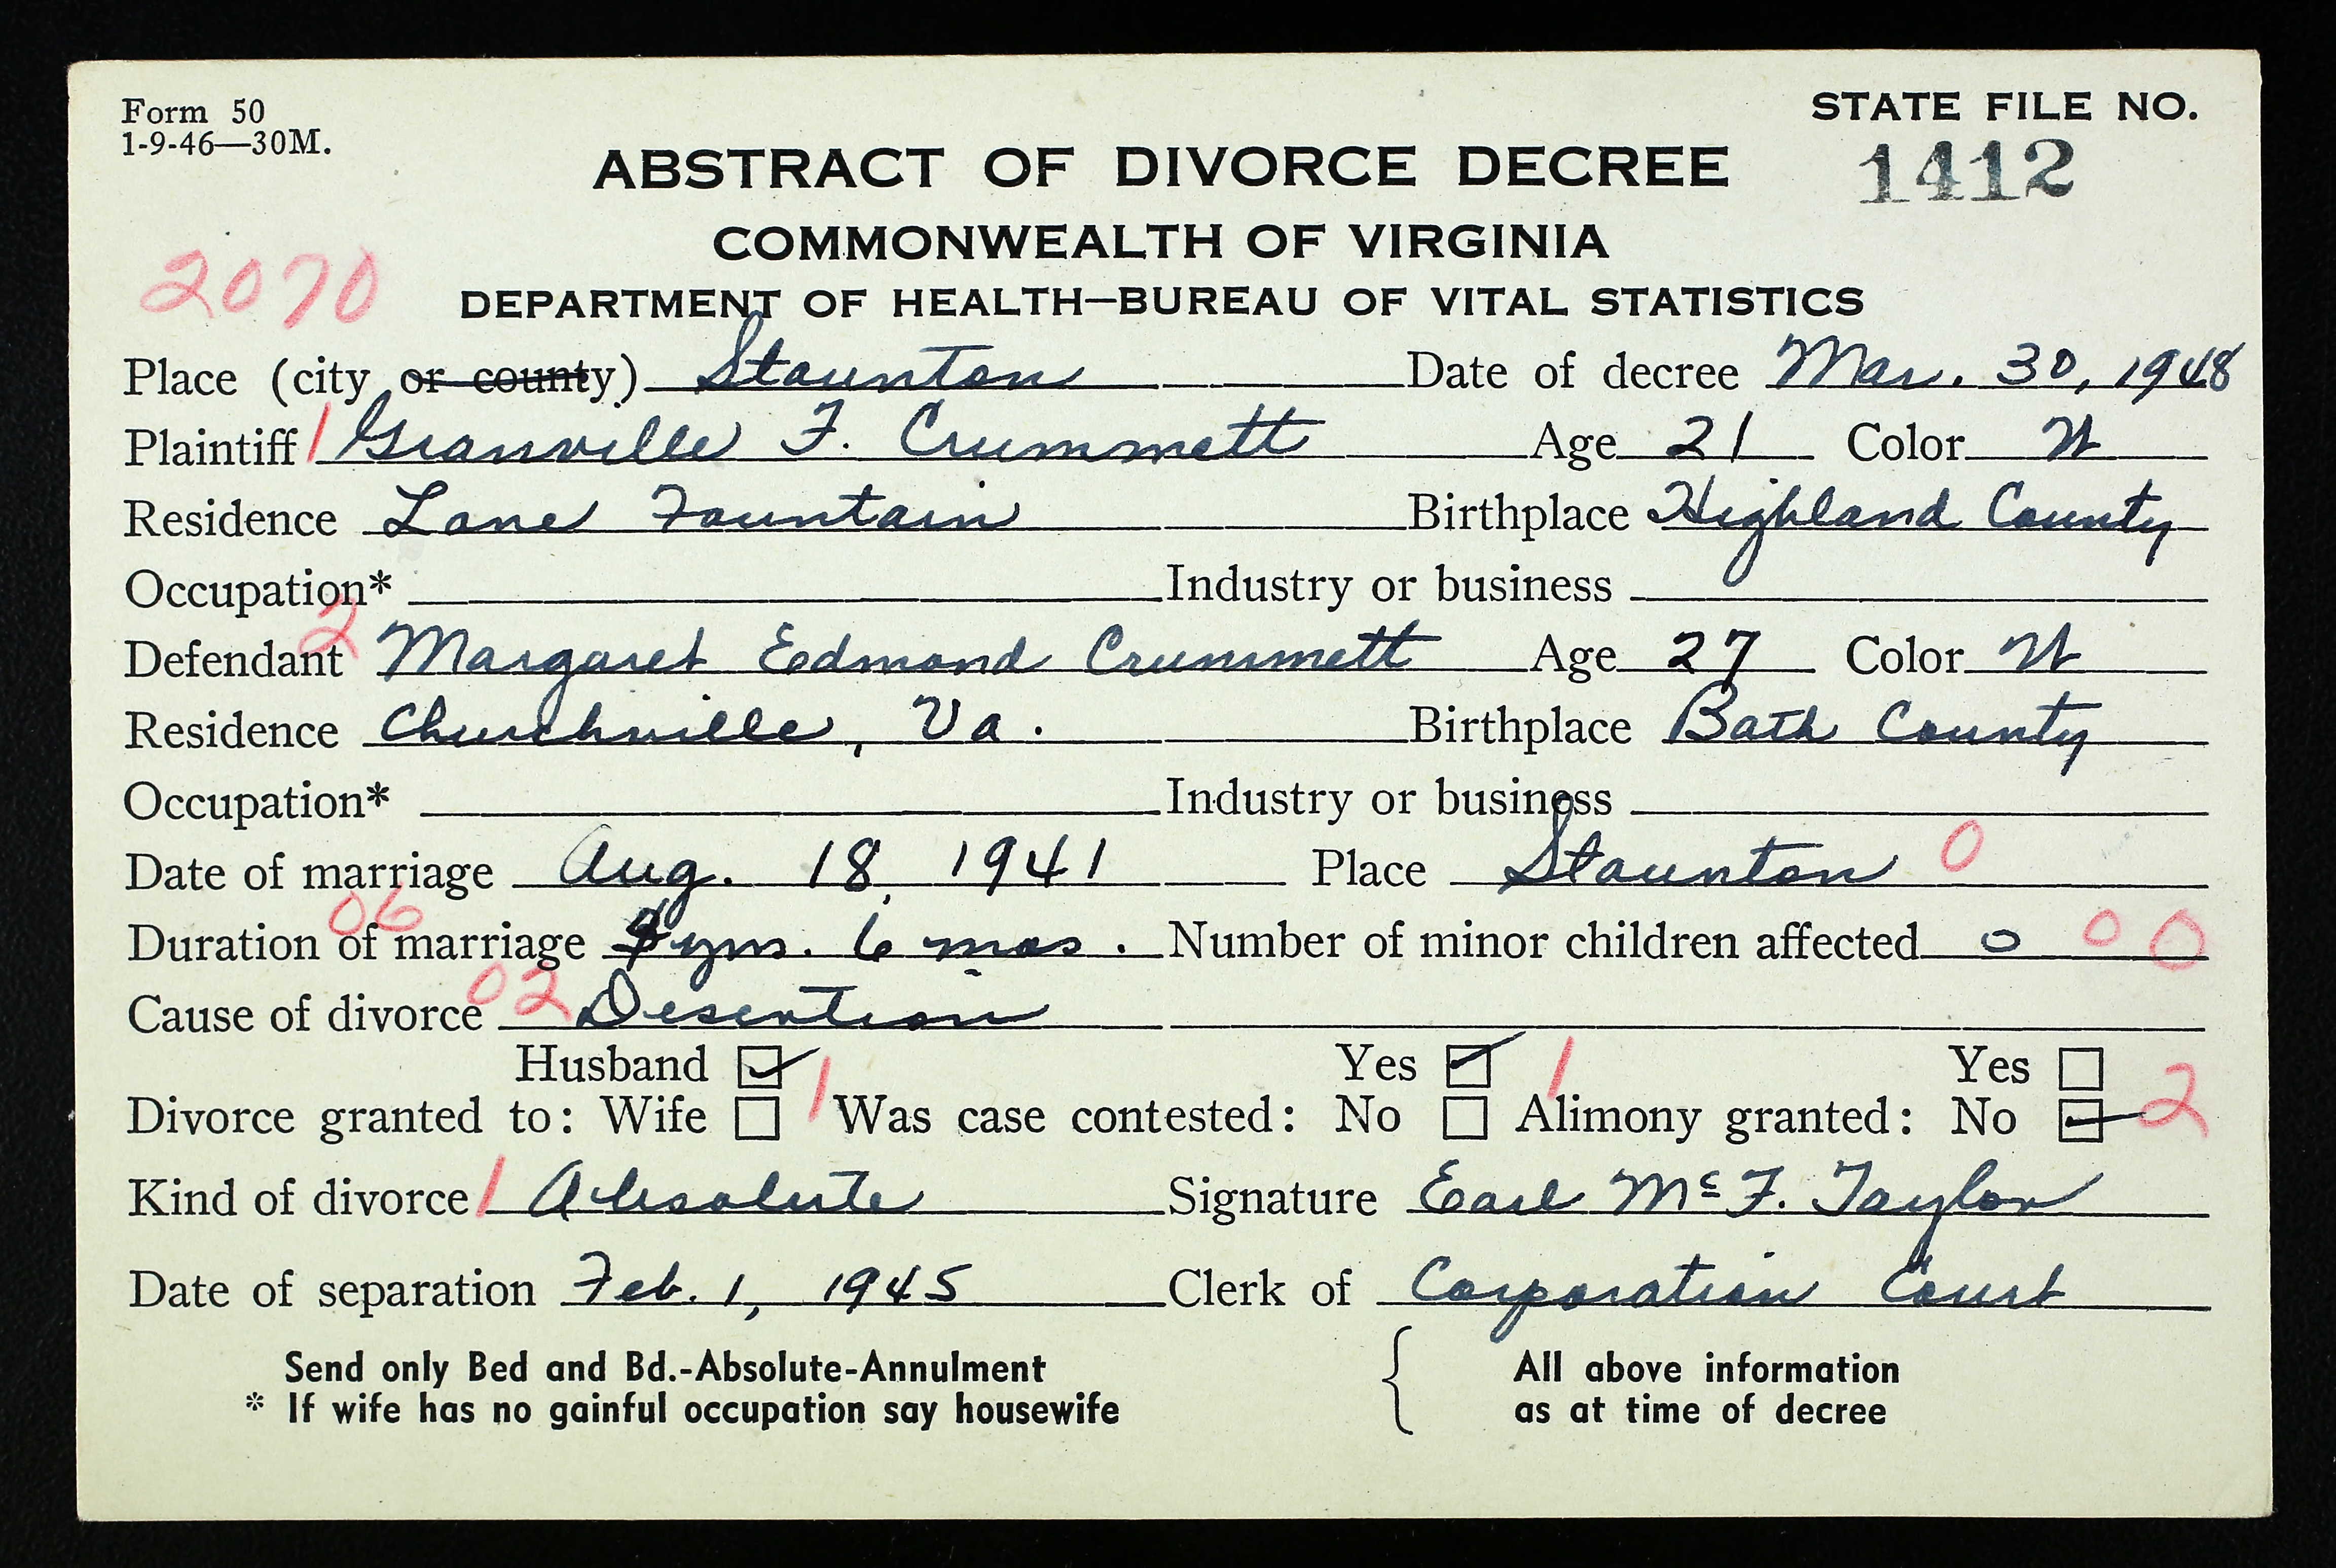 Form 50
1-9-46—30M.
STATE FILE NO.
1412
ABSTRACT OF DIVORCE DECREE
COMMONWEALTH OF VIRGINIA
2070
DEPARTMENT OF HEALTH—BUREAU OF VITAL STATISTICS
Place (city or county) Staunton Date of decree Mar. 30, 1948
Plaintiff 1 Granville F. Crummett Age 21 Color W
Residence Lone Fountain Birthplace Highland County
Occupation* Industry or business
Defendant 2 Margaret Edmond Crummett Age 27 Color W
Residence Churchville, Va. Birthplace Bath County
Occupation* Industry or business
Date of marriage Aug. 18, 1941 Place Staunton 0
06
Duration of marriage yrs. 6 mos. Number of minor children affected 0 0 0
Cause of divorce 02 Desertion
Husband Yes 1 Yes
Divorce granted to: Wife 1 Was case contested: No Alimony granted: No 2
Kind of divorce 1 Absolute Signature Earl McF. Taylor
Date of separation Feb. 1, 1945 Clerk of Corporation Court
Send only Bed and Bd.-Absolute-Annulment All above information
* If wife has no gainful occupation say housewife as at time of decree